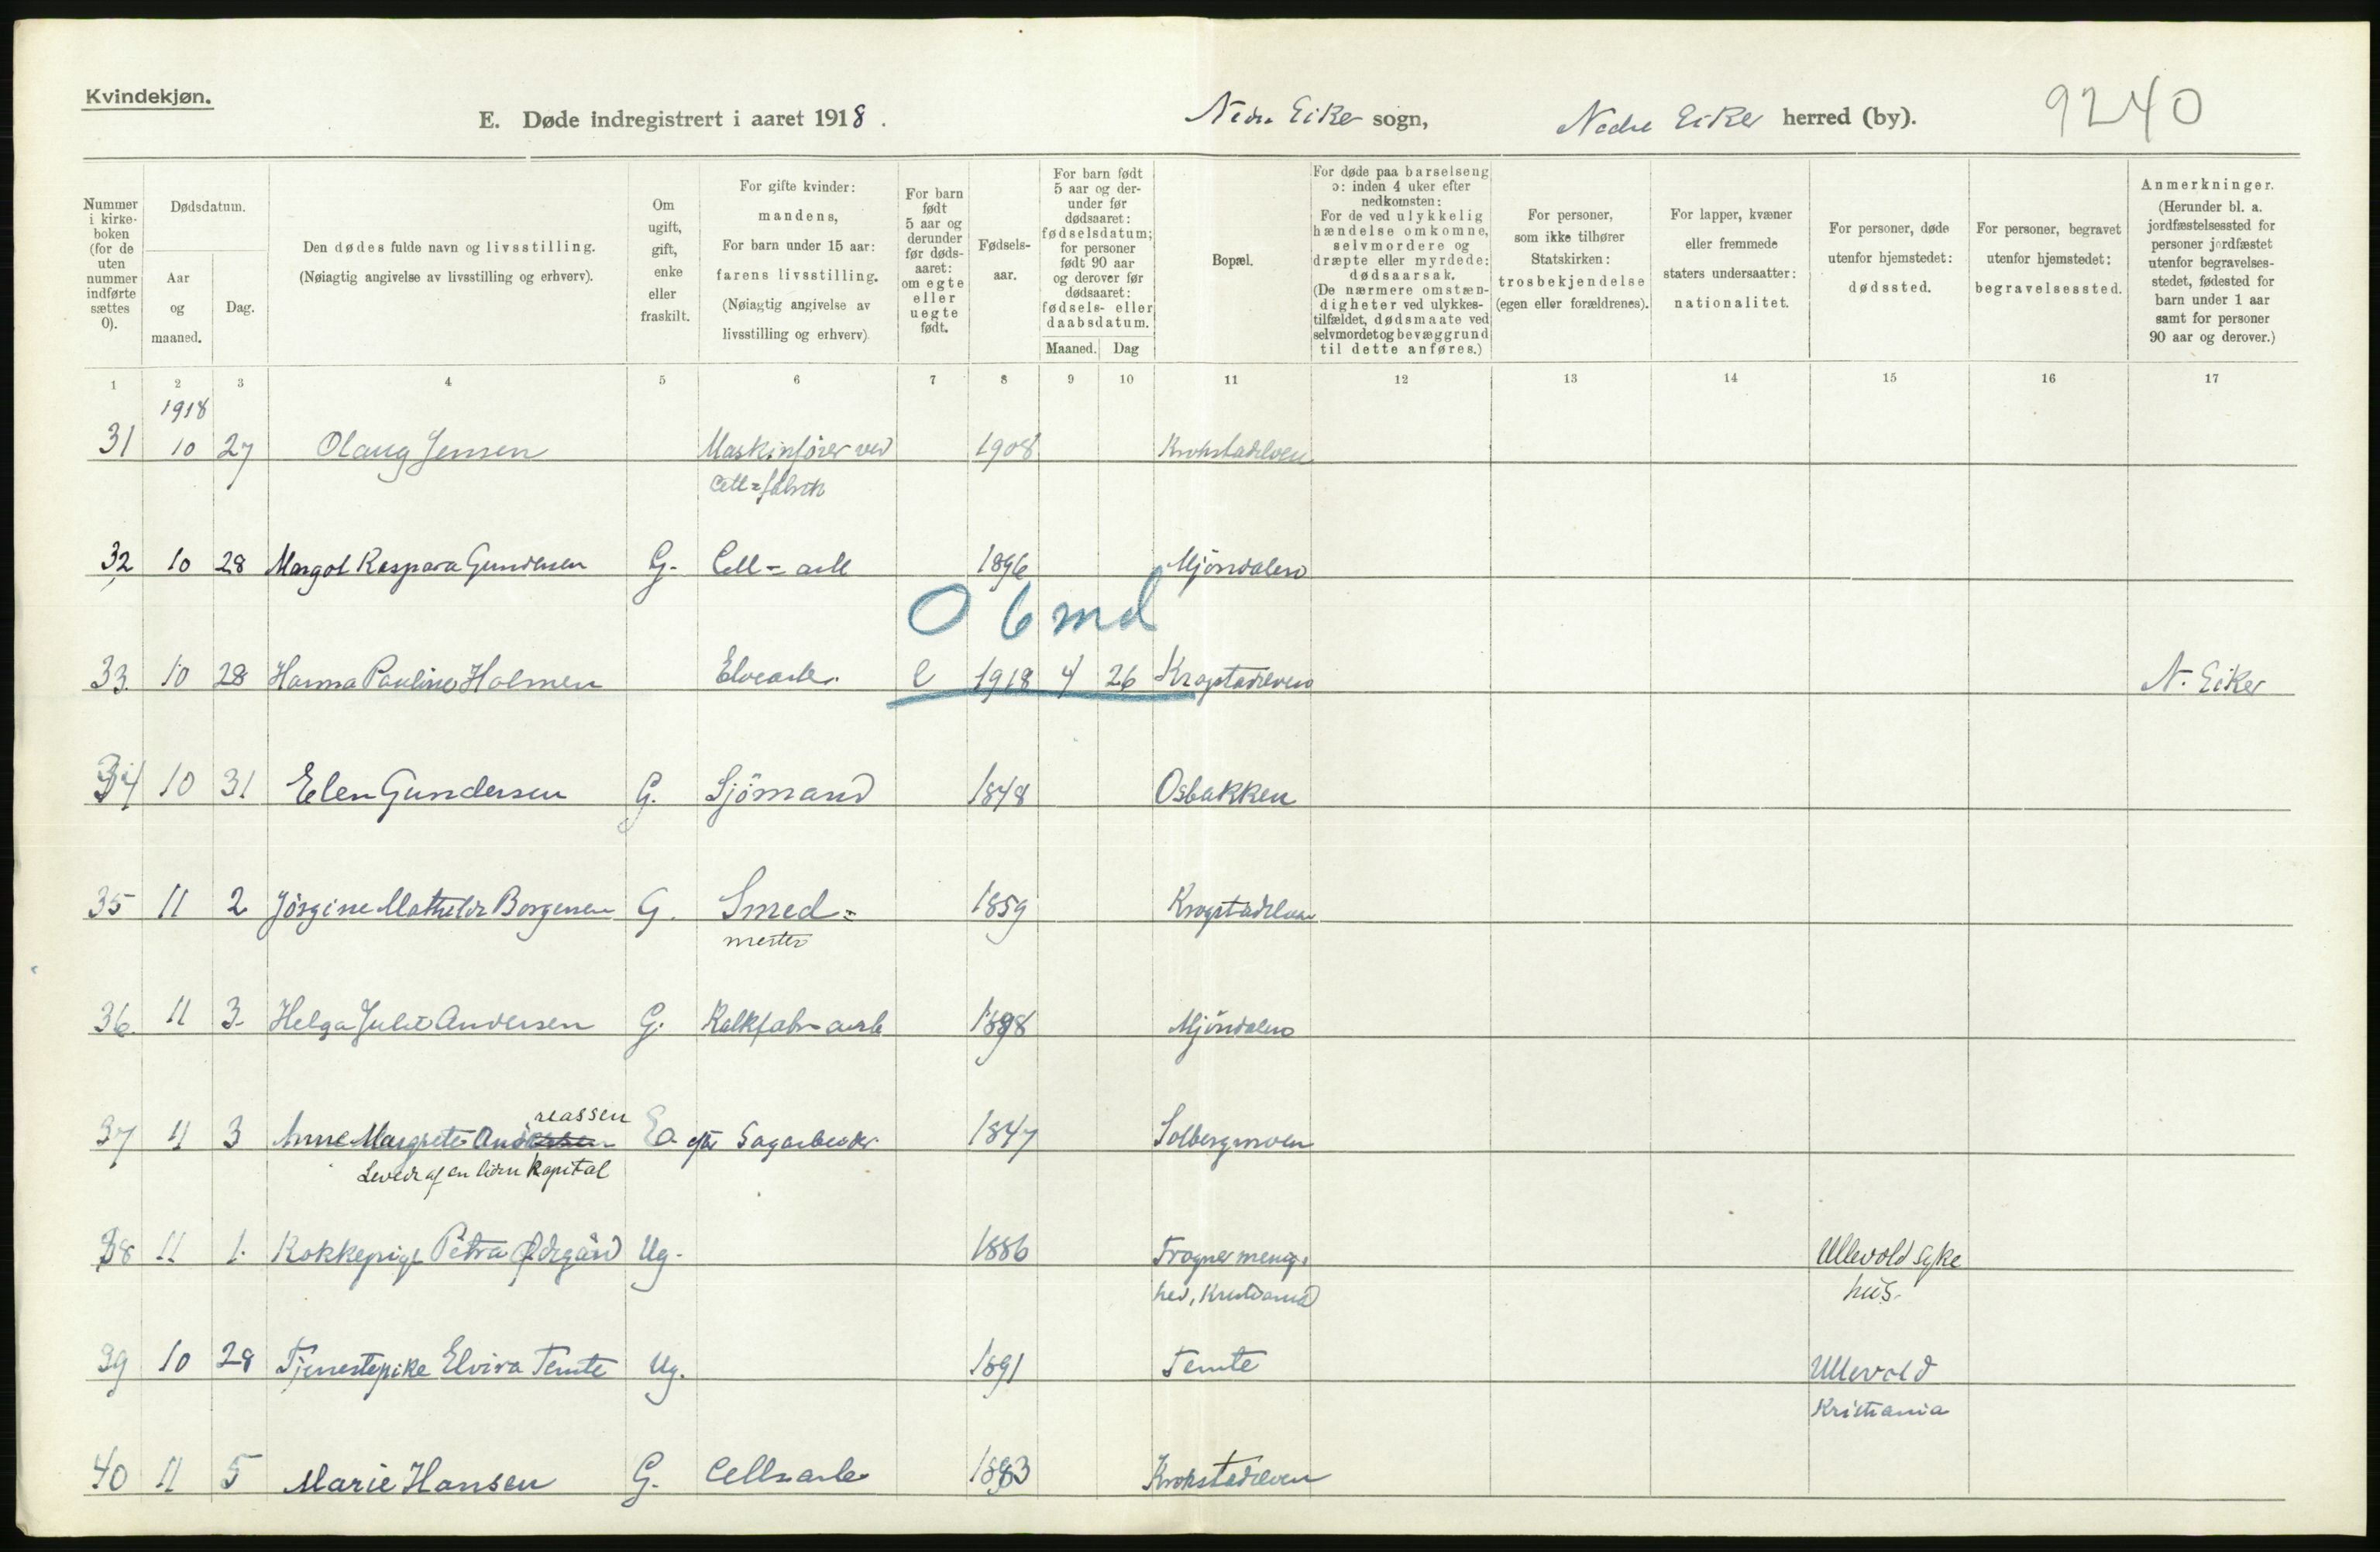 Kvindekjøn.
E. Døde indregistrert i aaret 1918.
Nedre Eiker sogn, Nedre Eiker herred (by).
9240
Nummer i kirke-boken (for de uten nummer indførte sættes 0).
Dødsdatum.
Aar og maaned.
Dag.
Den dødes fulde navn og livsstilling.
(Nøiagtig angivelse av livsstilling og erhverv).
Om ugift, gift, enke eller fraskilt.
For gifte kvinder: mandens,
For barn under 15 aar: farens livsstilling.
(Nøiagtig angivelse av livsstilling og erhverv)
For barn født 5 aar og derunder før døds-aaret: om egte eller uegte født.
Fødsels-aar.
For barn født 5 aar og der-under før dødsaaret: fødselsdatum; for personer født 90 aar og derover før dødsaaret: fødsels- eller daabsdatum.
Maaned. Dag
Bopæl.
For døde paa barselseng ɔ: inden 4 uker efter nedkomsten:
For de ved ulykkelig hændelse omkomne, selvmordere og dræpte eller myrdede: dødsaarsak.
(De nærmere omstæn-digheter ved ulykkes-tilfældet, dødsmaate ved selvmordet og bevæggrund til dette anføres.)
For personer, som ikke tilhører Statskirken: trosbekjendelse (egen eller forældrenes).
For lapper, kvæner eller fremmede staters undersaatter: nationalitet.
For personer, døde utenfor hjemstedet: dødssted.
For personer, begravet utenfor hjemstedet: begravelsessted.
Anmerkninger.
(Herunder bl. a. jordfæstelsessted for personer jordfæstet utenfor begravelses-stedet, fødested for barn under 1 aar samt for personer 90 aar og derover.)
1 2 3 4 5 6 7 8 9 10 11 12 13 14 15 16 17
1918
31 10 27 Olaug Jensen Maskinfører ved 1908 Krokstadelven
Cell=fabrik
32 10 28 Margot Kaspara Gundersen G. Cell=arb 1896 Mjöndalen
0 6 md
33. 10 28 Hanna Pauline Holmen Elvearb. e 1918 4 26 Krogstadelven N. Eiker
34 10 31 Elen Gundersen G. Sjömand 1848 Osbakken
35 11 2 Jörgine Mathilde Borgersen G. Smed= 1859 Krogstadelven
mester
36. 11 3. Helga Julie Andersen G. Kalkfabr arb 1898 Mjöndalen
reassen
37 11 3 Anne Margrete Andersen E. efter Sagarbeider 1847 Solbergmoen
Levede af en liden Kapital
38 11 1. Kokkepige Petra Ødegård Ug. 1886 Frogner menig- Ullevold syke
hed, Kristiania hus.
39 10 28 Tjenestepike Elvira Temte Ug. 1891 Temte Ullevold
Kristiania
40 11 5 Marie Hansen G. Cell=arb. 1883 Krokstadelven